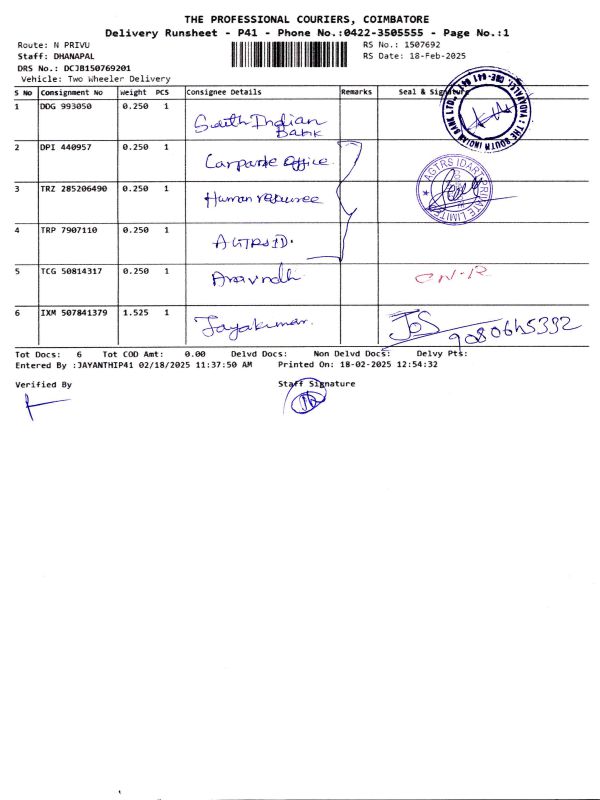 THE PROFESSIONAL COURIERS, COIMBATORE
Delivery Runsheet - P41 - Phone No.:0422-3505555 - Page No.:1
Route: N PRIVU RS No.: 1507692
Staff: DHANAPAL RS Date: 18-Feb-2025
DRS No.: DCJB150769201
Vehicle: Two Wheeler Delivery
S No Consignment No Weight PCS Consignee Details Remarks Seal & Signature
1 DDG 993050 0.250 1 South Indian Bank
2 DPI 440957 0.250 1 Corporate office
3 TRZ 285206490 0.250 1 Human resource
4 TRP 7907110 0.250 1 AGTRSID.
5 TCG 50814317 0.250 1 Aravindh
6 IXM 507841379 1.525 1 Jayakumar.
THE SOUTH INDIAN BANK LTD.
AGTRS IDART PRIVATE LIMITED
Tot Docs: 6 Tot COD Amt: 0.00 Delvd Docs: Non Delvd Docs: Delvy Pts:
Entered By :JAYANTHIP41 02/18/2025 11:37:50 AM Printed On: 18-02-2025 12:54:32
Verified By Staff Signature